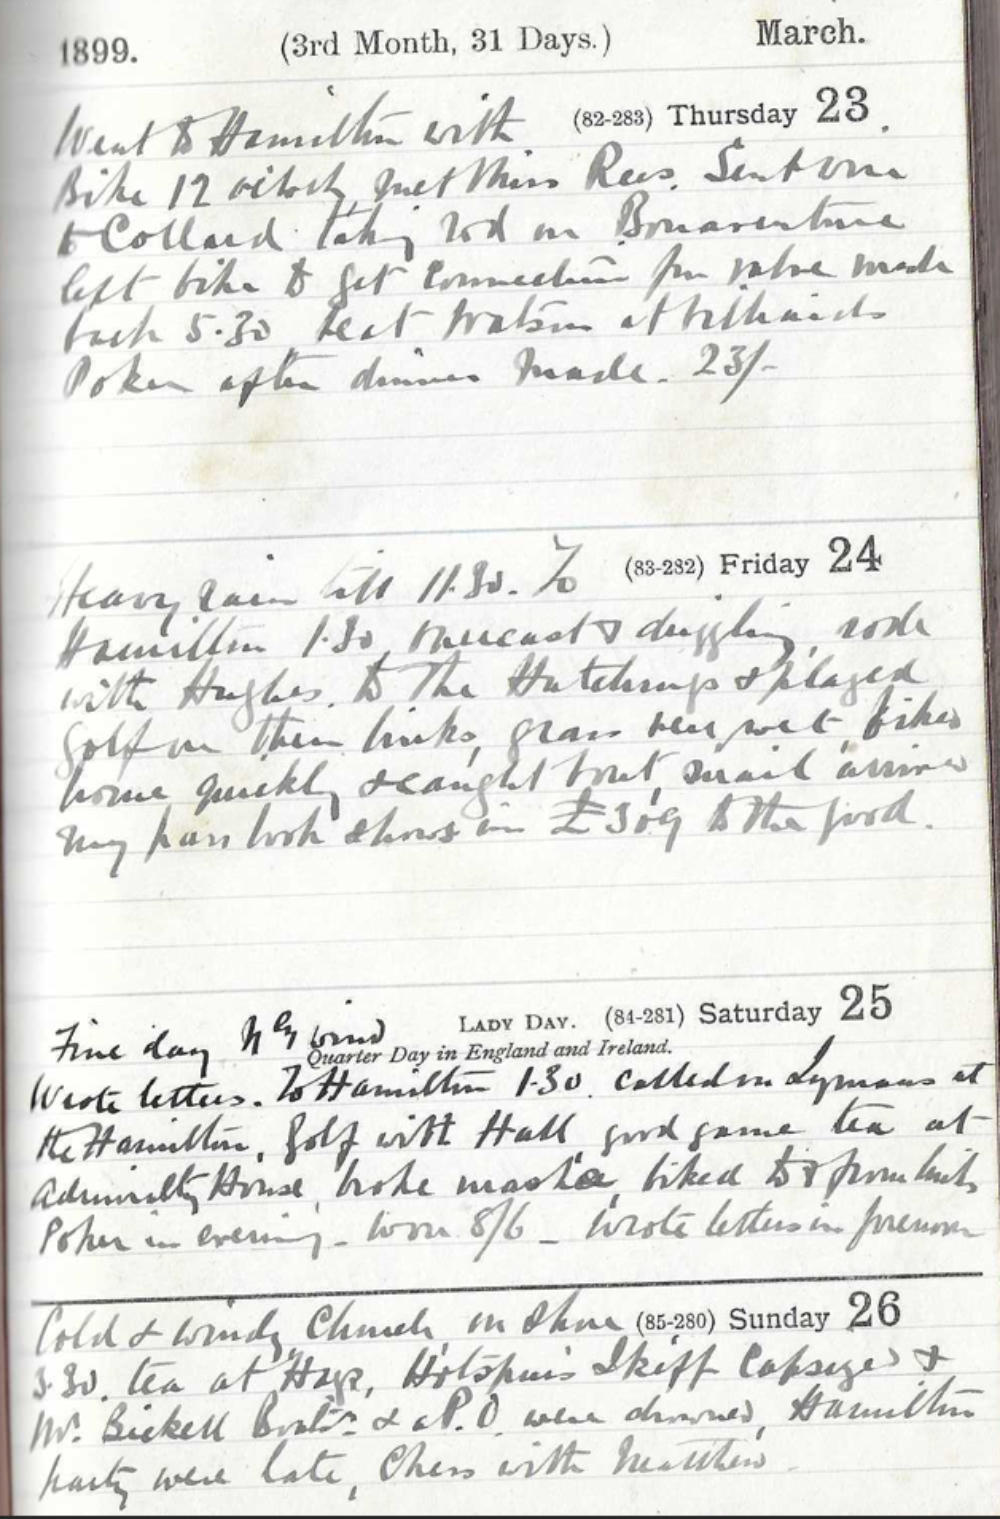 1899. (3rd Month, 31 Days.) March.
(82-283) Thursday 23
Went to Hamilton with
Bike 12 oclock, met Miss Rees. Sent wire
to Collard taking rod on Bonaventure
left bike to get connection for valve made
back 5.30 beat Watson at billiards
Poker after dinner made. 23/-
(83-282) Friday 24
Heavy rain till 11.30. To
Hamilton 1.30 overcast & drizzling, rode
with Hughes. to the Hutchings & played
golf on their links, grass very wet, biked
home quickly & caught boat, mail arrived
my pass book shows im £309 to the good.
LADY DAY. (84-281) Saturday 25
Quarter Day in England and Ireland.
Fine day Nly wind
Wrote letters. To Hamilton 1.30. called on Lymans at
the Hamilton, Golf with Hall good game tea at
Admiralty House, broke mashie, biked to & from links
Poker in evening - won 8/6 - Wrote letters in forenoon
(85-280) Sunday 26
Cold & windy, Church on shore
3.30. tea at Hotspurs Skiff Capsized &
Mr. Bickell Boatn. & a P.O. were drowned, Hamilton
party were late, Chess with Matthew